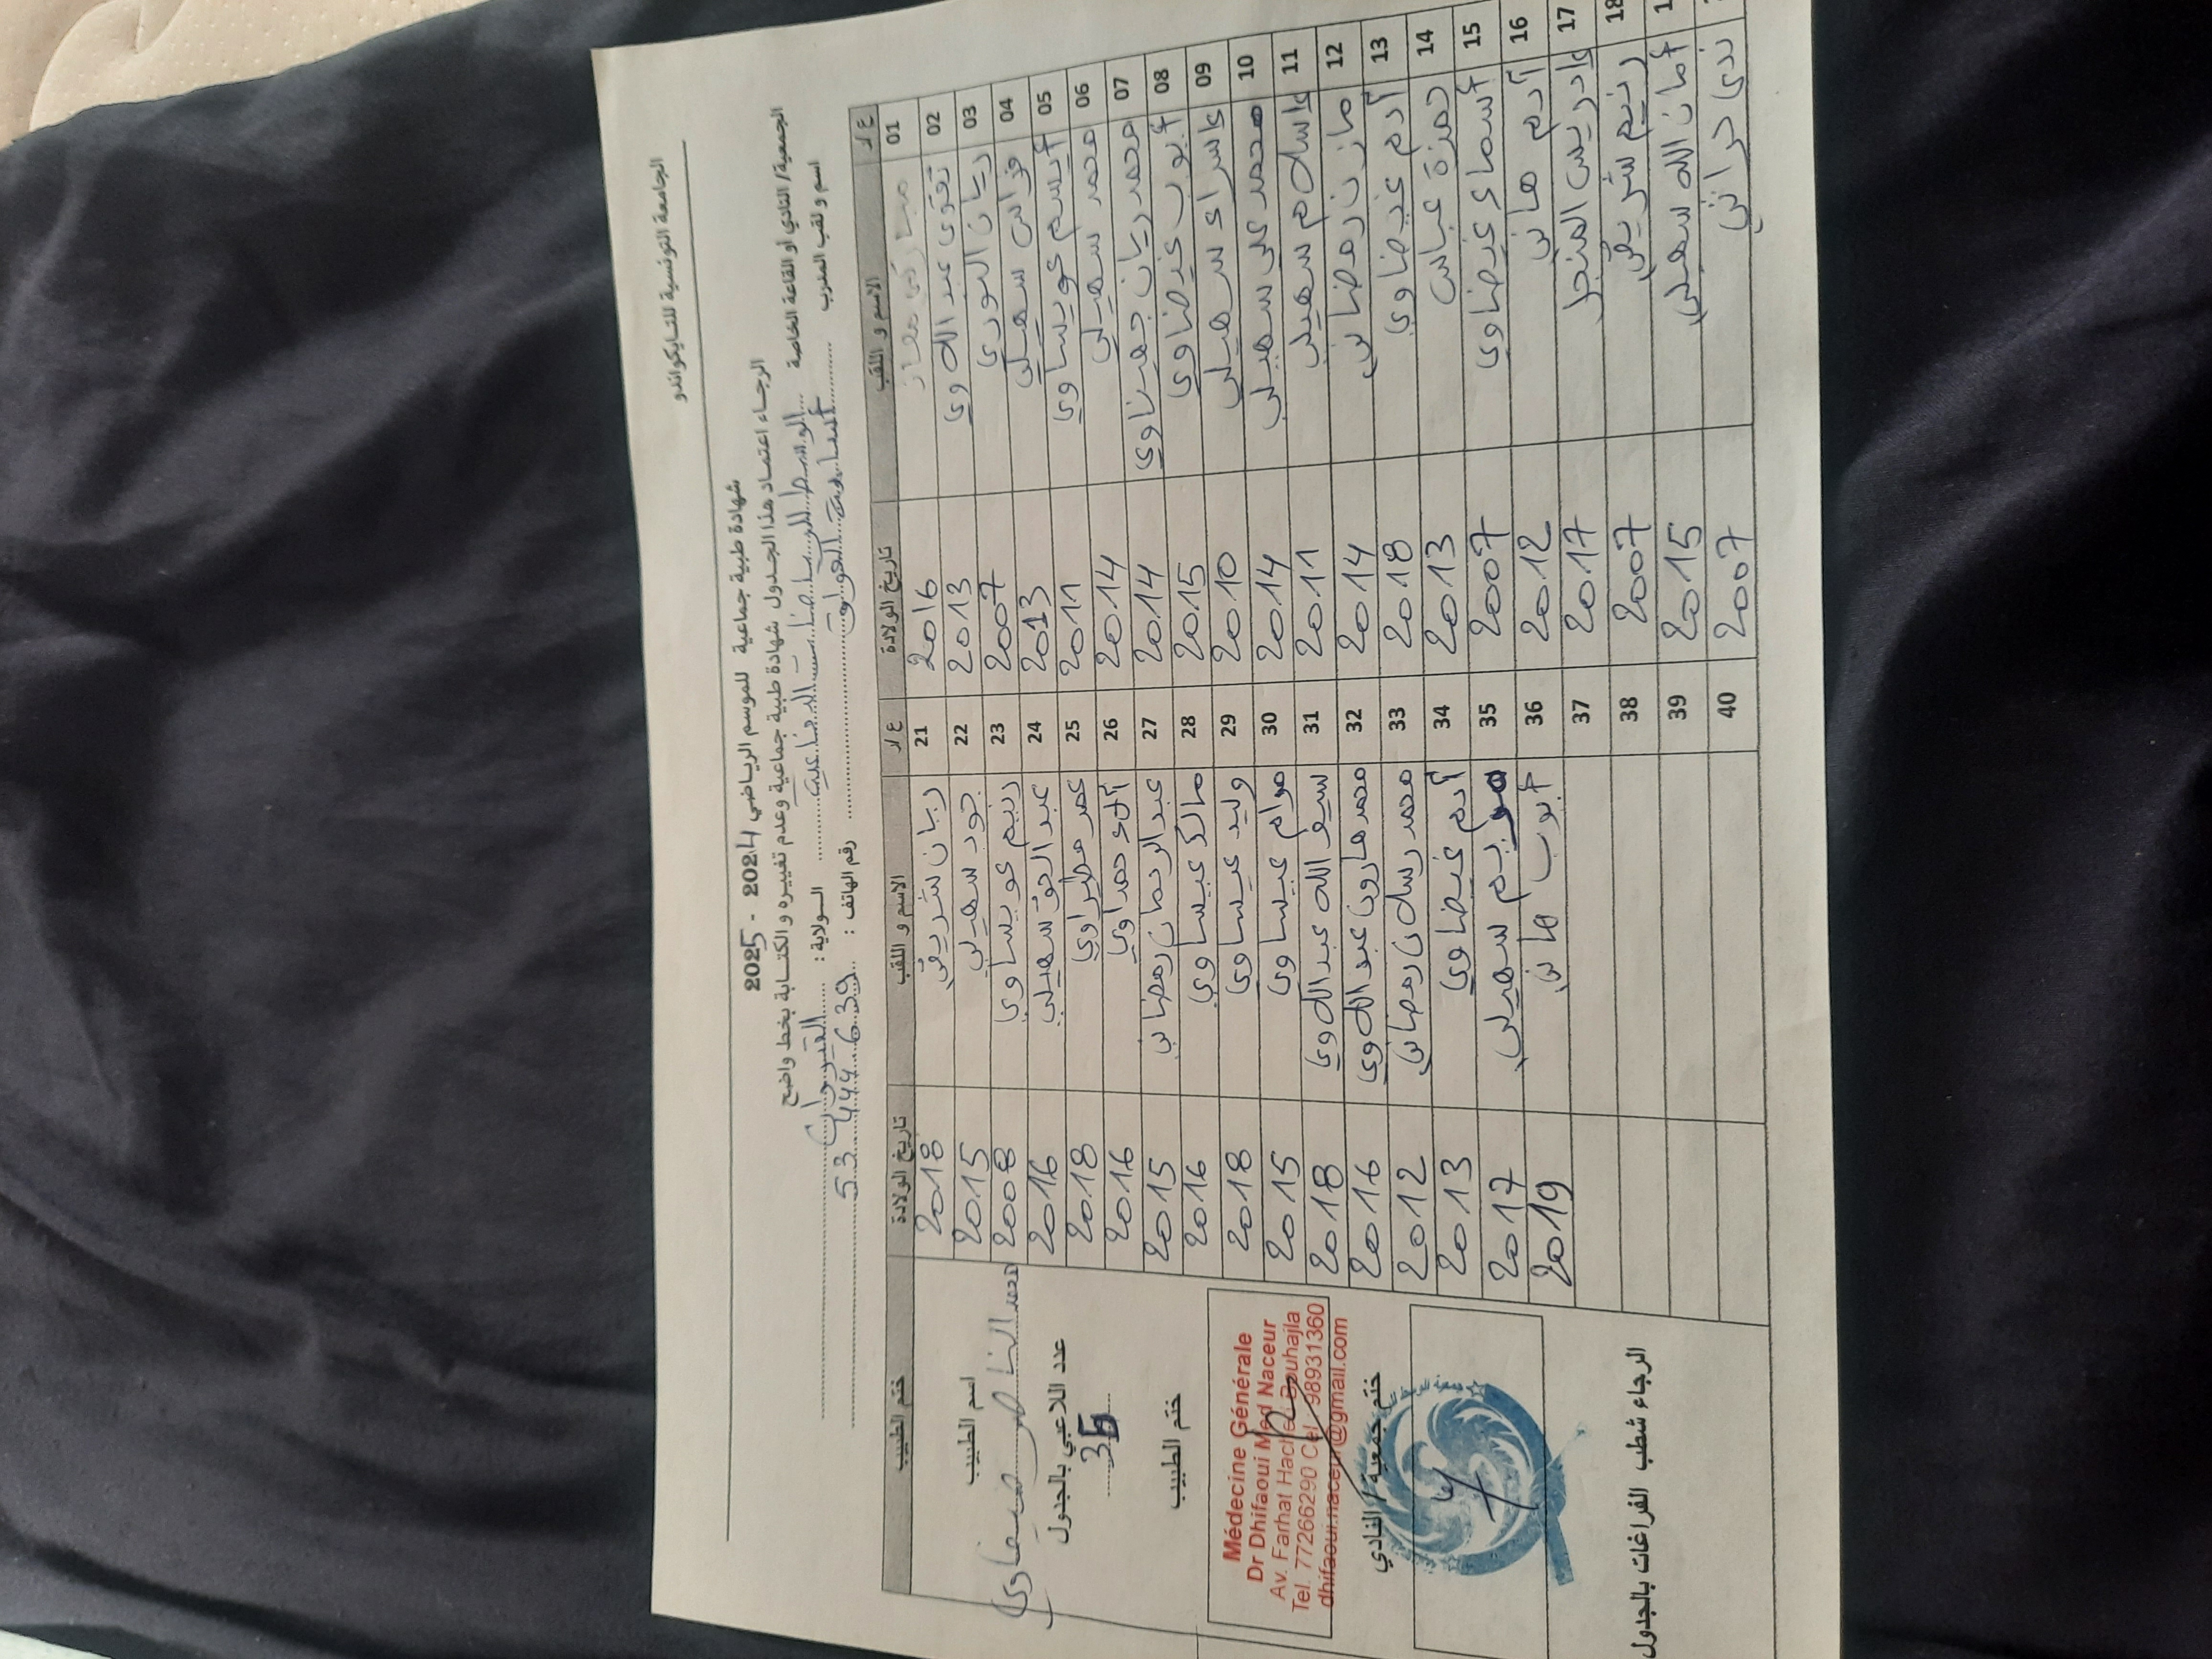 الجامعة التونسية للتايكواندو
شهادة طبية جماعية للموسم الرياضي 2024 - 2025
الرجاء اعتماد هذا الجدول شهادة طبية جماعية وعدم تغييره والكتابة بخط واضح
الجمعية/ النادي أو القاعة الخاصة الوسط للرياضات الدفاعية الولاية : القيروان
اسم و لقب المدرب أسامة رقم الهاتف : 53 444 639
ع/ر الاسم و اللقب تاريخ الولادة ع/ر الاسم و اللقب تاريخ الولادة ختم الطبيب
01 مباركي معاز 2016 21 ريان شريفي 2018
02 تقوى عبد اللاوي 2013 22 جود سهيلي 2015
03 ريان النوري 2007 23 رنيم عويساوي 2008
04 فراس سهيلي 2013 24 عبد الحق سهيلي 2016
05 أيسم عويساوي 2011 25 عمر مطيراوي 2018
06 محمد سهيلي 2014 26 ألاء حمداوي 2016
07 محمد ريان جهيناوي 2014 27 عبد الرحمان رمضاني 2015
08 أيوب غيضاوي 2015 28 مالك عيساوي 2016
09 إسراء سهيلي 2010 29 وليد عيساوي 2018
10 محمد علي سهيلي 2014 30 مرام عيساوي 2015
11 إسلام سهيلي 2011 31 سيف الله عبد اللاوي 2018
12 مازن رمضاني 2014 32 محمد هارون عبد اللاوي 2016
13 آدم غيضاوي 2018 33 محمد رسلان رمضاني 2012
14 حمزة عباس 2013 34 آدم غيضاوي 2013
15 أسماء غيضاوي 2007 35 مريم سهيلي 2017
16 آدم هاني 2012 36 أيوب هاني 2019
17 إدريس المنجل 2017 37
18 رنيم شريفي 2007 38
أمان الله سهيلي 2015 39
ندى حراثي 2007 40
اسم الطبيب
محمد الناصر ضيفاوي
عدد اللاعبي بالجدول
36
ختم الطبيب
Médecine Générale
Dr Dhifaoui Med Naceur
Av. Farhat Hached Bouhajla
Tel. 77266290 Cel. 98931360
dhifaoui.nacem@gmail.com
ختم جمعية/ النادي
الرجاء شطب الفراغات بالجدول